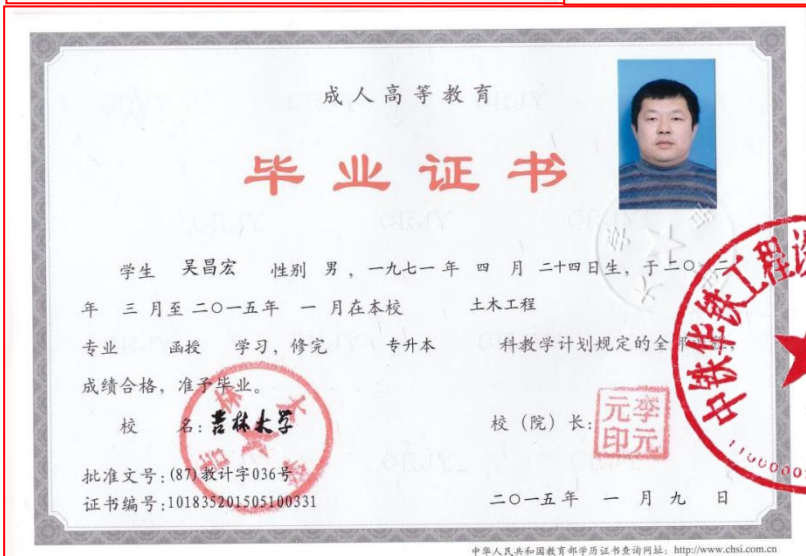 成人高等教育
毕业证书
学生 吴昌宏 性别 男，一九七一年 四 月 二十四日生，于二〇一二
年 三 月至 二〇一五年 一 月在本校 土木工程
专业 函授 学习，修完 专升本 科教学计划规定的全部课程，
成绩合格，准予毕业。
校 名：吉林大学
校（院）长：
李元元印
吉林大学
批准文号：(87)教计字036号
证书编号：101835201505100331
二〇一五年 一 月 九 日
中铁华铁工程设
中华人民共和国教育部学历证书查询网址：http://www.chsi.com.cn